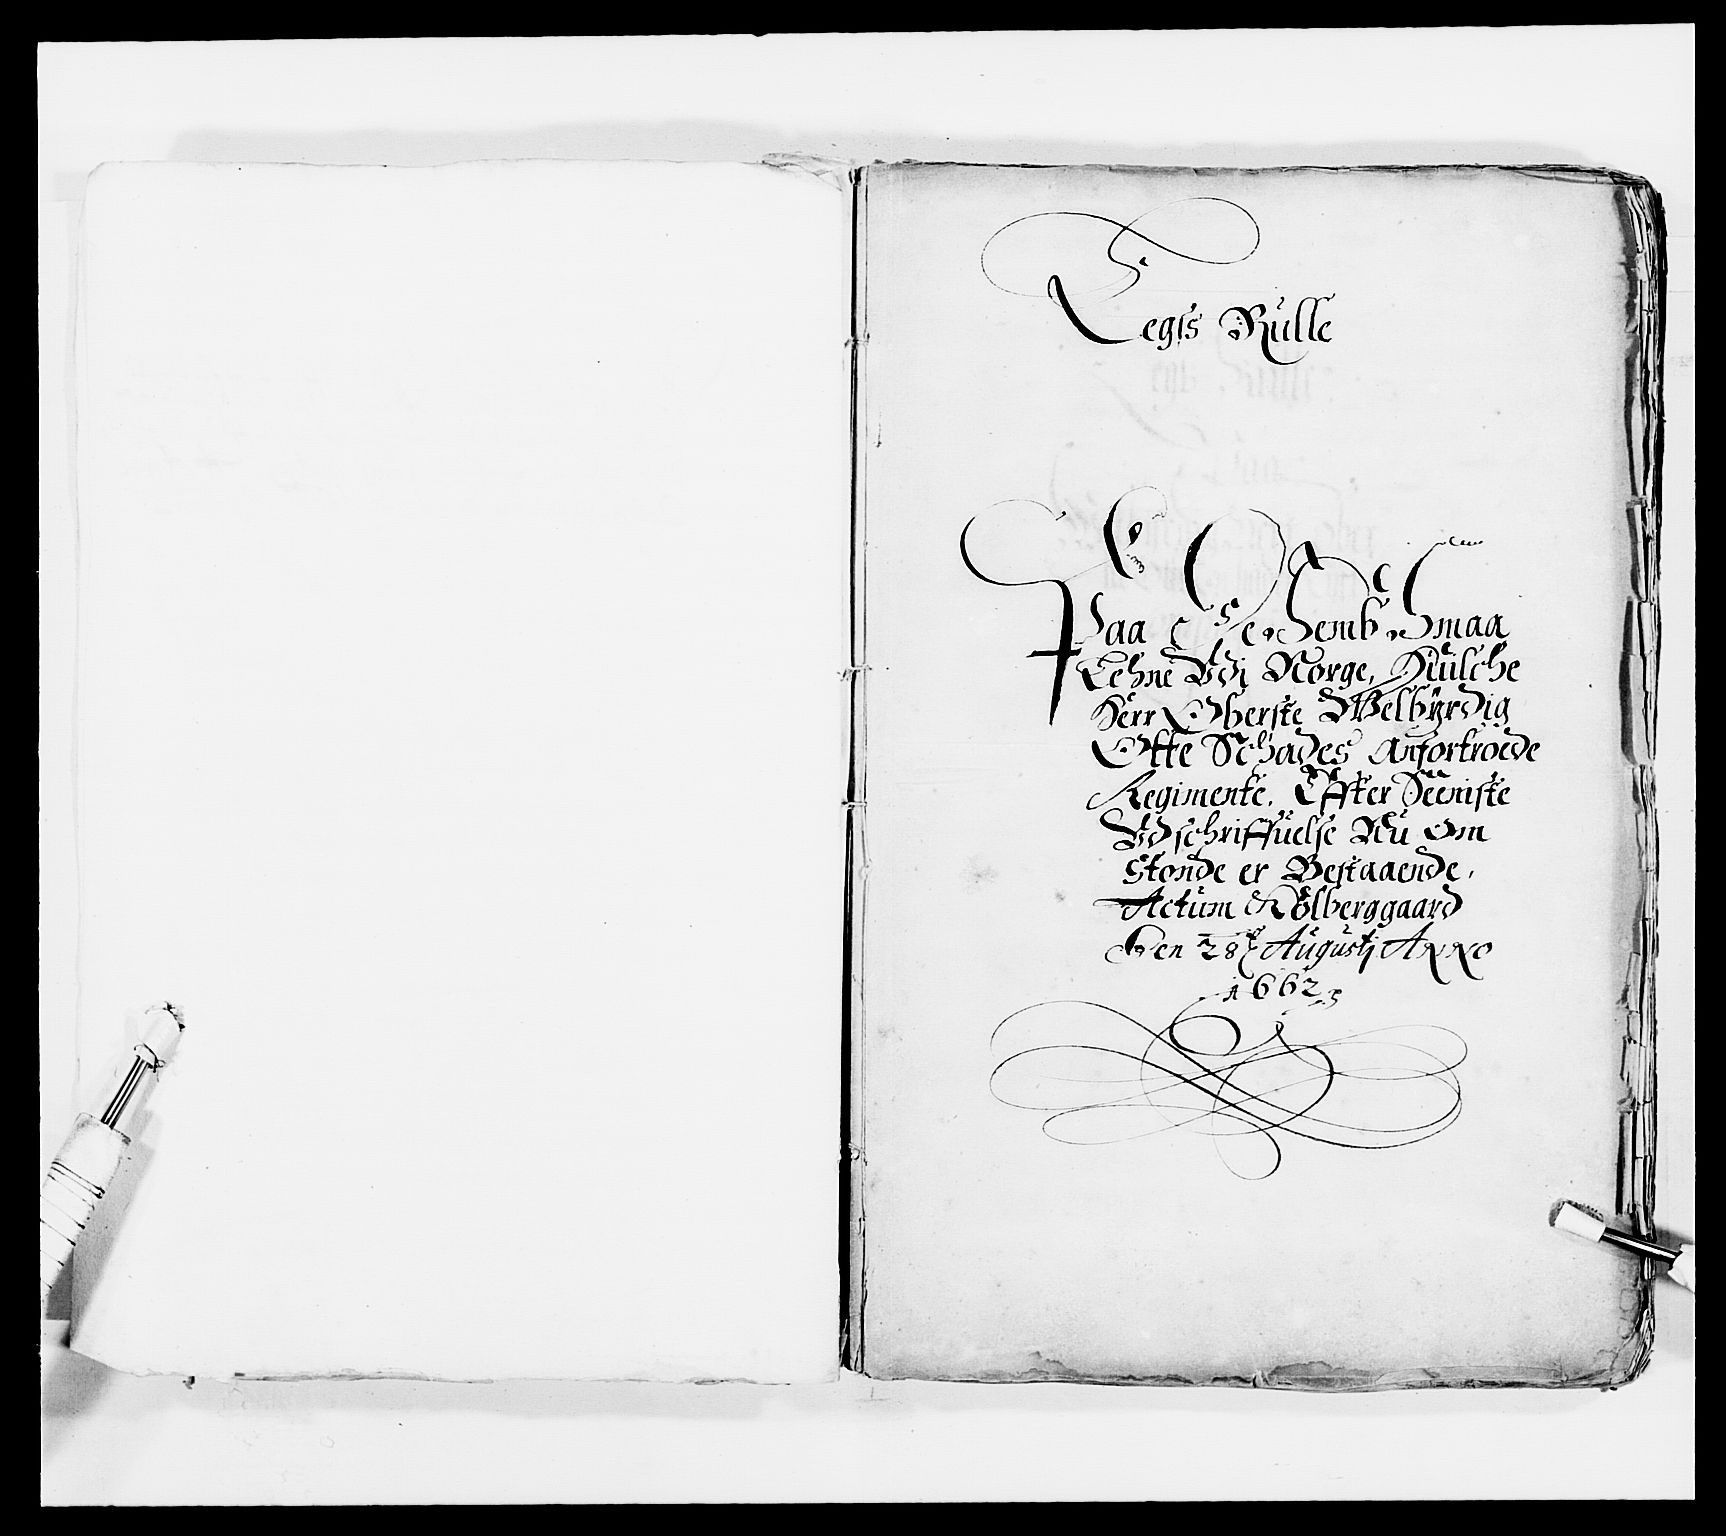 Legis Rulle
Paa De Hemb Smaa
Lehne Vdi Norge, Huilche
Herr Oberste Welbÿrdig
Otte Schades Anfortroede
Regimente. Effter Seeniste
Vdschriffuelse Nu om
stonde er Bestaaende,
Actum Kølberggaard
Den 28 Augustj Anno
1662